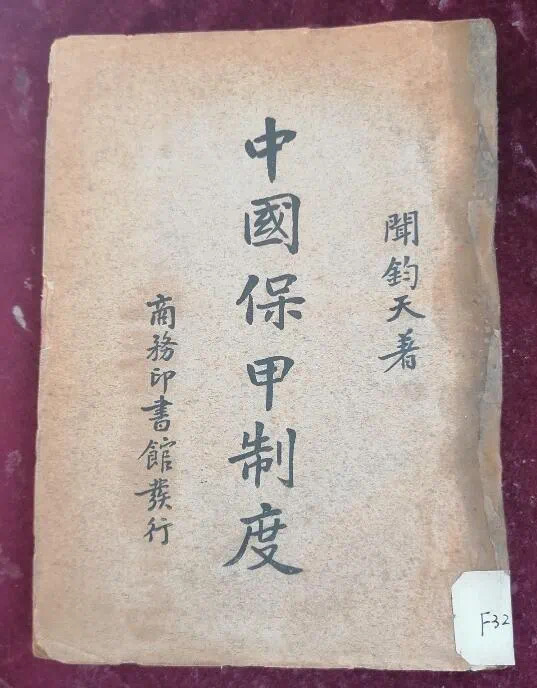 聞鈞天著
中國保甲制度
商務印書館發行
F32